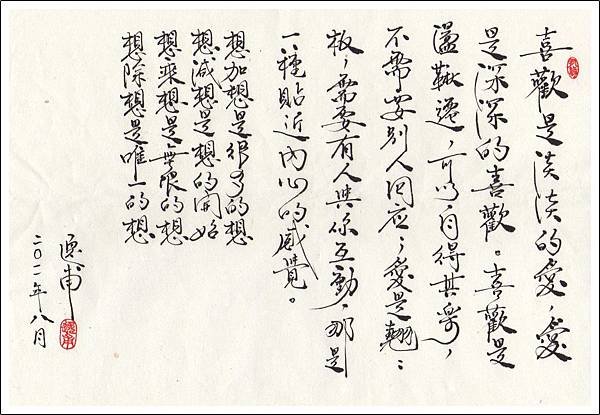 喜歡是淡淡的愛，愛
是深深的喜歡。喜歡是
盪鞦遷，可以自得其樂，
不需要別人回应；愛是翹翹
板，需要有人與你互動，那是
一種貼近內心的感覺。
想加想是很多的想
想減想是想的開始
想乘想是無限的想
想除想是唯一的想
二〇一一年八月